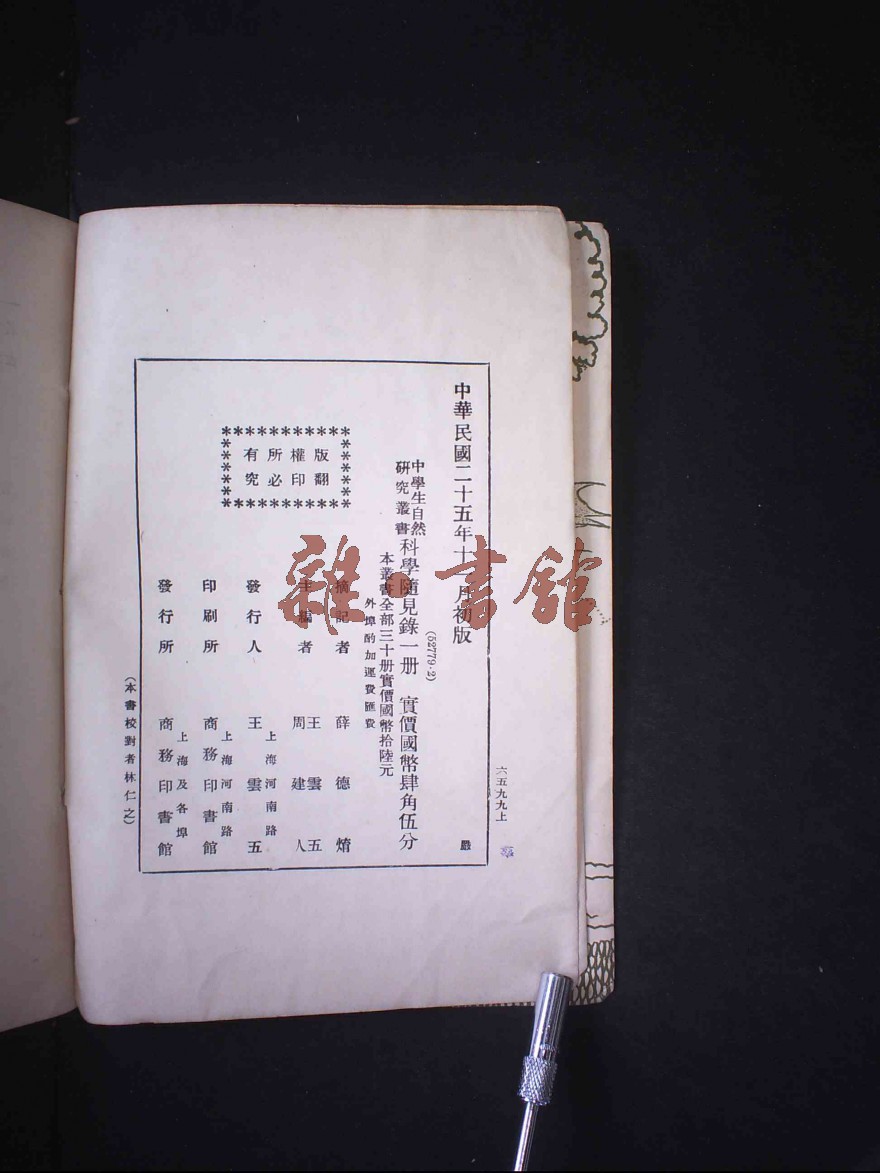 六五九九上
中華民國二十五年十二月初版
中學生自然
研究叢書
科學隨見錄一册 實價國幣肆角伍分
(52779·2)
本叢書全部三十册實價國幣拾陸元
外埠酌加運費匯費
版權所有
翻印必究
摘記者 薛德焴
主編者 王雲五
周建人
發行人 王雲五
上海河南路
印刷所 商務印書館
上海河南路
發行所 商務印書館
上海及各埠
(本書校對者林仁之)
雜·書館